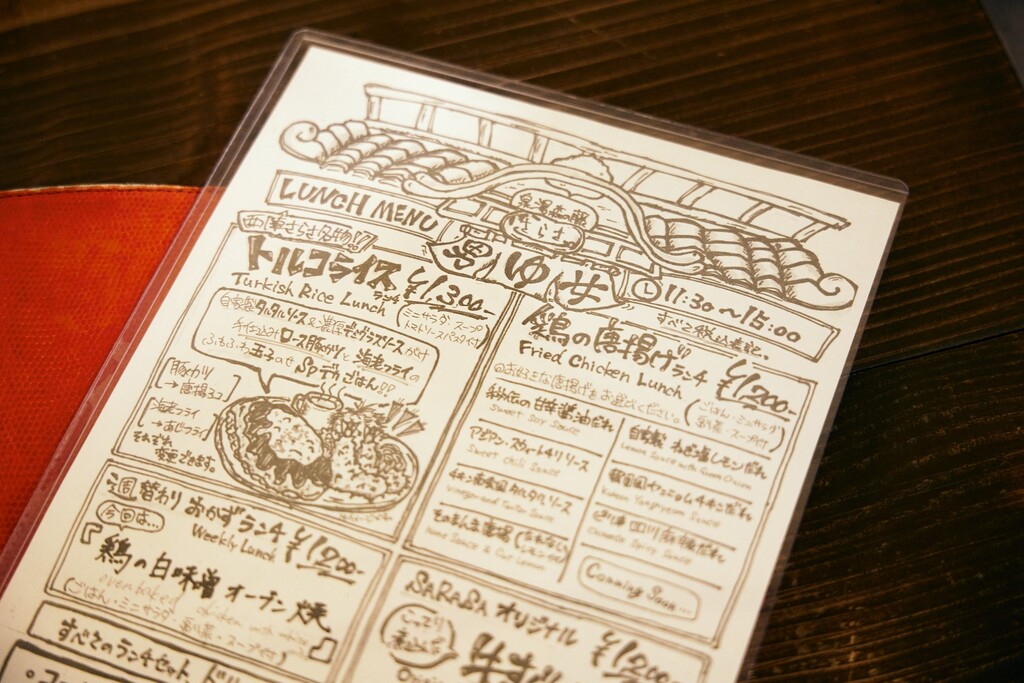 LUNCH MENU
さらさ
ゆ
11:30～15:00
すべて税込表記。
西陣さらさ名物!!
トルコライス ランチ ¥1,300-
Turkish Rice Lunch
(ミニサラダ・スープ
トマトソースパスタ付)
自家製タルタルソース&濃厚デミグラスソースがけ
手仕込みロース豚かつと海老フライの
ふわふわ玉子のせ
SPデカごはん!!
豚かツ
→唐揚3コ
海老フライ
→あじフライ
それぞれ
変更できます。
週替わりおかずランチ ¥1,200-
Weekly Lunch
今回は…
『鶏の白味噌オーブン焼』
oven baked chicken with white
(ごはん・ミニサラダ・スープ付)
すべてのランチセット
鶏の唐揚げランチ ¥1,200-
Fried Chicken Lunch
(ごはん・ミニサラダ
スープ付)
◎お好きな唐揚げをお選びください。
秘伝の甘辛醤油だれ
Sweet Soy Sauce
アジアン・スウィートチリソース
Sweet Chili Sauce
チキン南蛮風タルタルソース
Vinegar and Tartar Sauce
そのまんま唐揚
None Sauce & Cut Lemon
自家製 ねぎ塩レモンだれ
Lemon Sauce with Green Onion
韓国風ヤンニョムチキンだれ
Korean Yangnyeom Sauce
四川麻辣だれ
Chinese Spicy Sauce
Comming Soon...
SARASA オリジナル ¥1,200-
こってり
煮込んだ
牛すじ